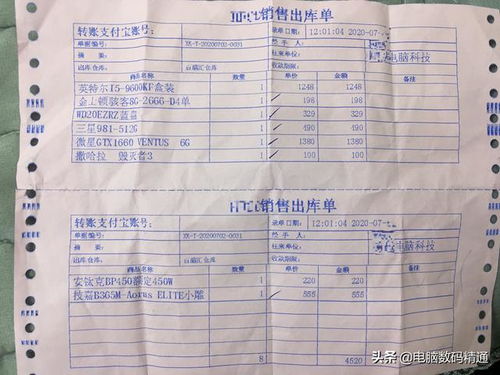 销售出库单
转账支付宝账号: 录单日期: 12:01:04 2020-07-
单据编号: XK-T-20200702-0031 经 手 人:
摘 要: 往来单位: 电脑科技
出库仓库: 百脑汇仓库 收款期限:
商品名称 数量 单价 金额 备注
英特尔I5-9600KF盒装 1 1248 1248
金士顿骇客8G-2666-D4单 1 198 198
WD20EZRZ蓝盘 1 329 329
三星981-512G 1 490 490
微星GTX1660 VENTUS 6G 1 1380 1380
撒哈拉 毁灭者3 1 100 100
销售出库单
转账支付宝账号: 录单日期: 12:01:04 2020-07-
单据编号: XK-T-20200702-0031 经 手 人:
摘 要: 往来单位: 电脑科技
出库仓库: 百脑汇仓库 收款期限:
商品名称 数量 单价 金额 备注
安钛克BP450额定450W 1 220 220
技嘉B365M-Aorus ELITE小雕 1 555 555
8 4520
头条 @电脑数码精通